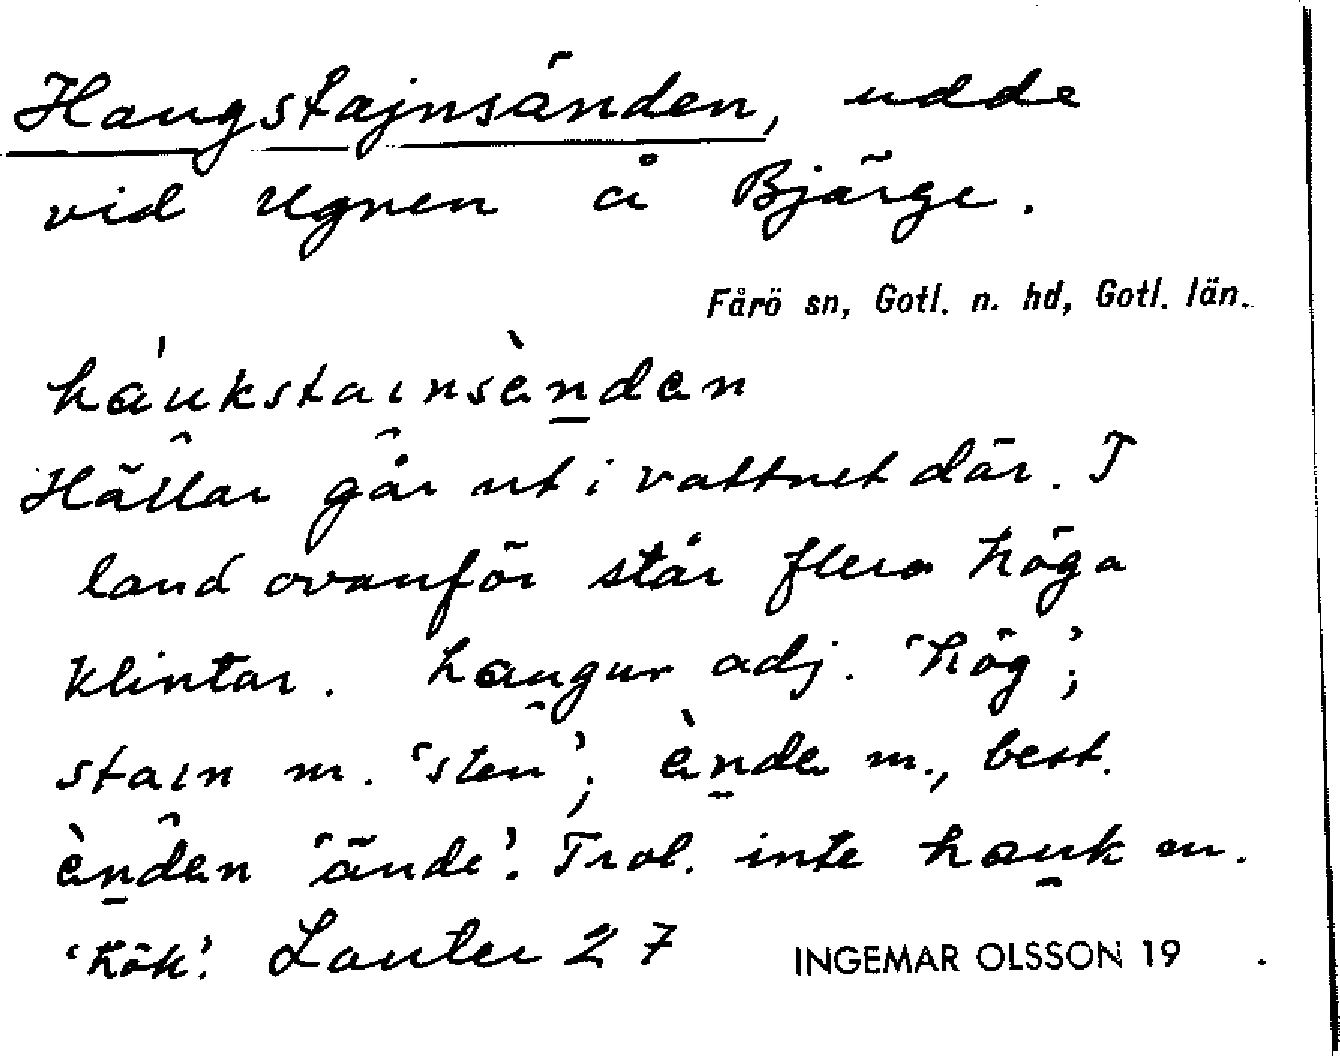 Haugstajnsänden, udde
vid Ugnen å Bjärge.
Fårö sn, Gotl. n. hd, Gotl. län.
háukstaınsènden
Hällar går ut i vattnet där. I
land ovanför står flera höga
klintar. haugur adj. 'hög';
staın m. 'sten'; ènde m., best.
ènden 'ände'. Trol. inte hauk m.
'hök'. Lauter 27
INGEMAR OLSSON 19 .